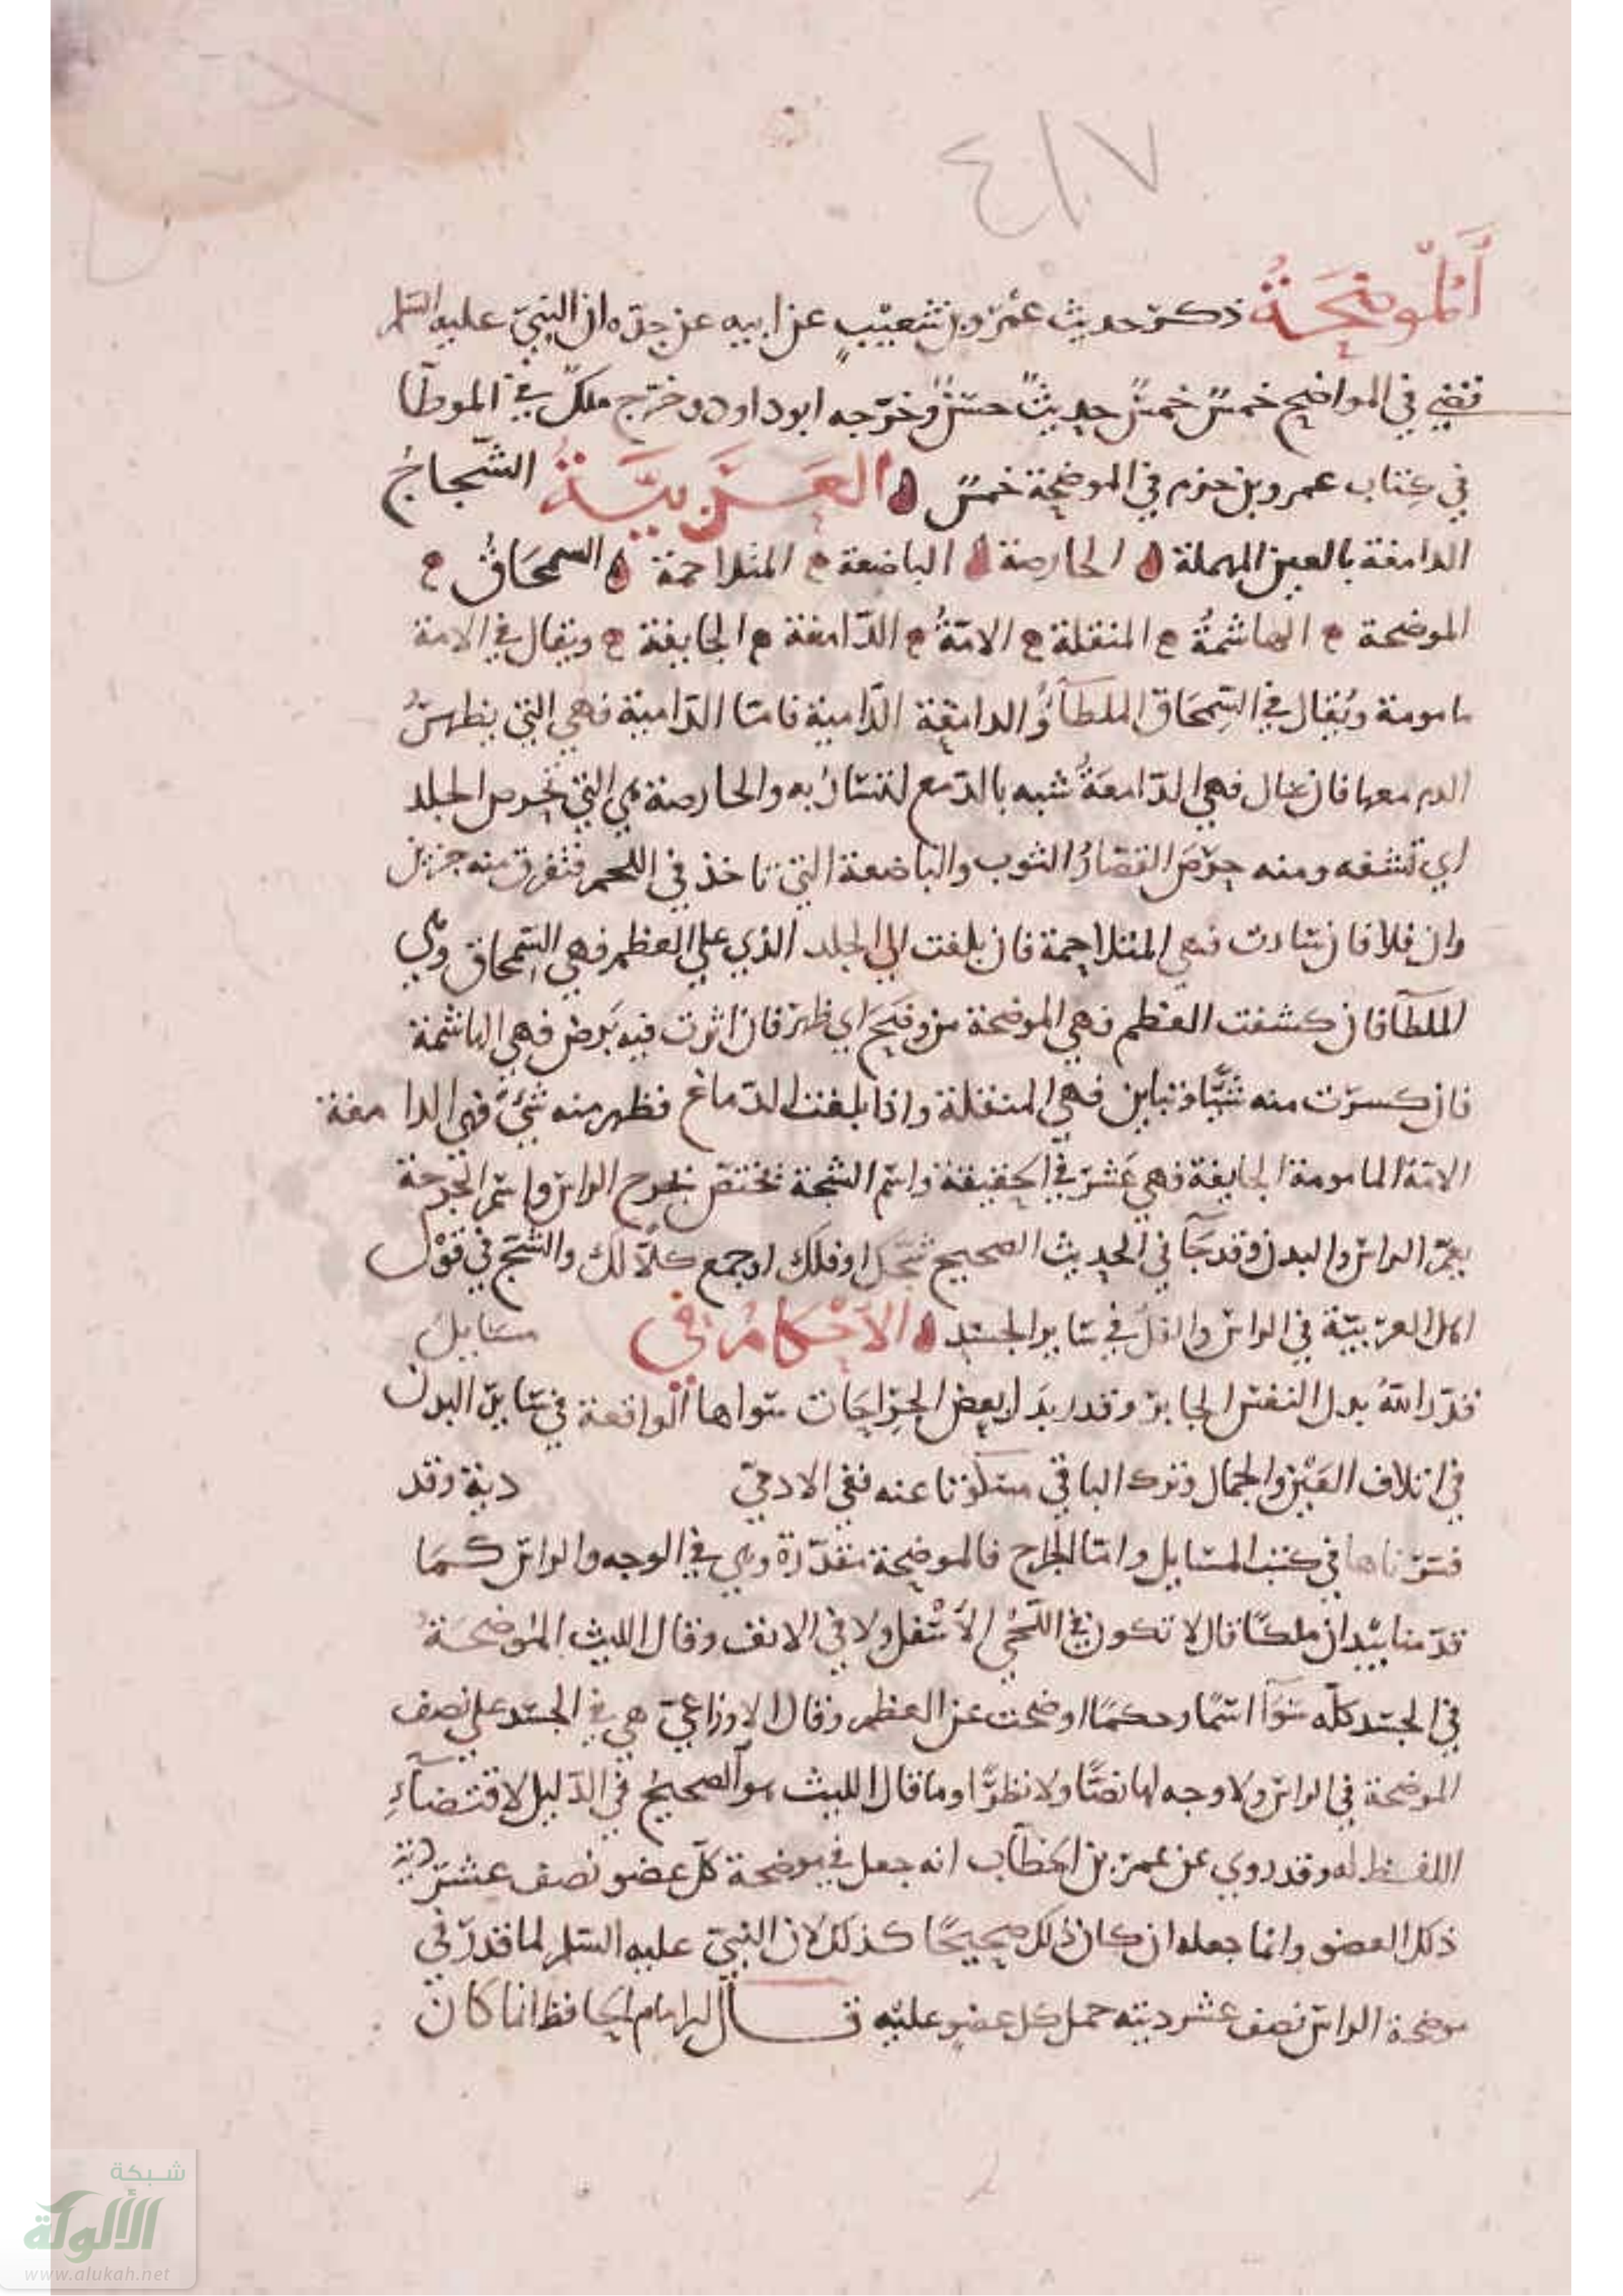 ٤١٧
اَلْموضِحَةُ ذكر حديث عمْرو بن شعيْبٍ عن ابيه عن جدّه ان النبيّ عليه السلم
قضي في المواضح خمسٌ خمسٌ حديثٌ حسنٌ وخرّجه ابو داود وخرّج ملكٌ في الموطأ
في كتاب عمرو بن حزم في الموضحة خمسٌ العَرَبيَّةُ الشّجاجُ
الدامعة بالعين المهملة الحارصة الباضعة المتلاحمة السمحَاقُ
الموضحة الهاشمةُ المنقلة الامّةُ الدّامغة الجايفة ويقال في الامة
مامومة ويُقال في السِّمحَاق الملطَأُ والدامعة الدّامية فامّا الدّامية فهي التي يظهرُ
الدم معها فان سال فهي الدّامعَةُ شبه بالدّمع لتشابُه به والحارصة هي التي تحرص الجلد
اي تشقه ومنه حرَصَ القصّارُ الثوب والباضعة التي تاخذ في اللحم فتفرق منه جزين
وان قلا فان زادت فهي المتلاحمة فان بلغت الي الجلد الذي علي العظم فهي السِّمحاق وهي
الملطآ فان كشفت العظم فهي الموضحة من وضَحَ اي ظهر فان اثرت فيه برض فهي الهاشمة
فان كسرت منه شيًّا وتباين فهي المنقلة واذا بلغت الدّماغ فظهر منه شيْءٌ فهي الدامغة
الامّة المامومة الجايفة فهي عَشرٌ في الحقيقة واسم الشجة تختصّ بجرح الراس واسم الجرحة
يعمّ الراس والبدن وقد جَآ في الحديث الصحيح شَجّكِ او فلّكِ او جمع كلًّا لك والشّج في قوْل
اهل العربيّة في الراس والفلُّ في سَاير الجسَد الاَحْكامُ في مسَايلَ
قدّر اللهُ بدل النفس الجابر وقدر بدَل بعض الجِراحَات سواها الواقعة في سَاير البدن
في اتلاف العَيْن والجمال وترك الباقي مسكوتا عنه ففي الادميّ دية وقد
فسّرناها في كتب المسَايل وامّا الجراح فالموضحة مقدّرة وهي في الوجه والراس كمَا
قدّمنا بيْد ان ملكًا قال لا تكون في اللّحْي الاَسْفل ولا في الانف وقال الليث الموْضحَةُ
في الجسد كلّه سَوَآ اسْمًا وحكمًا اوضحت عن العظم وقال الاوزاعيّ هي في الجسَد علي نصف
الموضحة في الراس ولا وجه لها نصًّا ولا نظرًا وما قال الليث هو الصحيحُ في الدّليل لاقتضآءِ
اللفظ له وقد روي عن عمر بن الخطّاب انه جعل في موضحة كلّ عضو نصف عشر دية
ذلك العضو وانما جعله ان كان ذلك صحيحًا كذلك لان النبيّ عليه السلم لما قدّر في
موضحة الراس نصف عشر ديته حمل كل عضو عليْه قال الامام الحَافظ انما كَانَ
شبكة
الألوكة
www.alukah.net